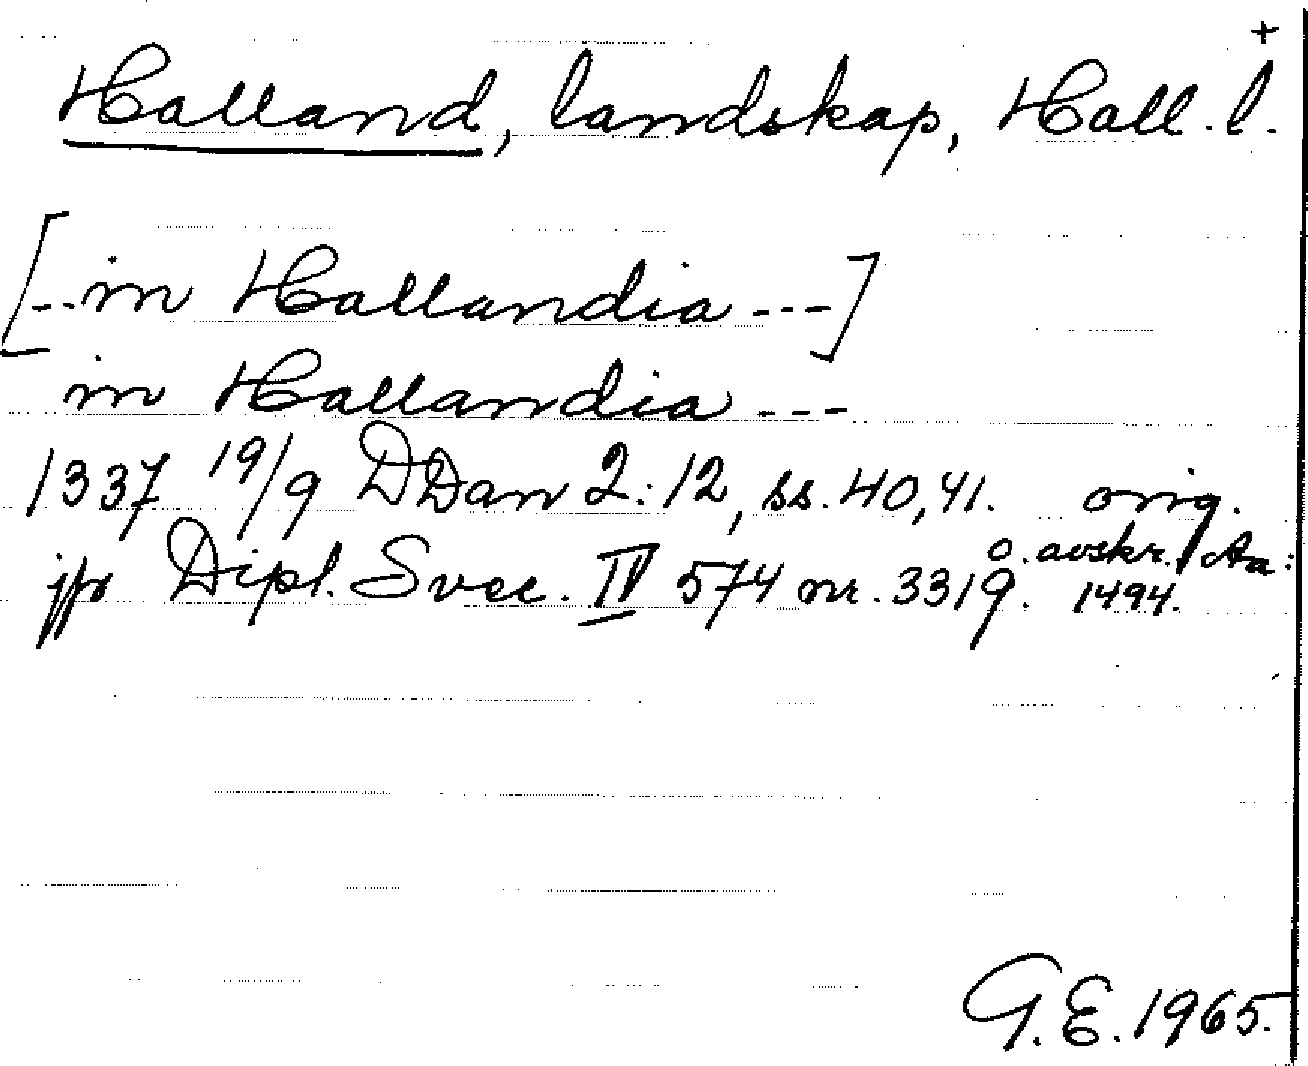 +
Halland, landskap, Hall. l.
[--in Hallandia ---]
in Hallandia ---
1337 19/9 DDan 2:12, ss. 40, 41. orig.
o. avskr. Aa:
jfr Dipl. Svec. IV 574 nr. 3319. 1494.
G.E. 1965.